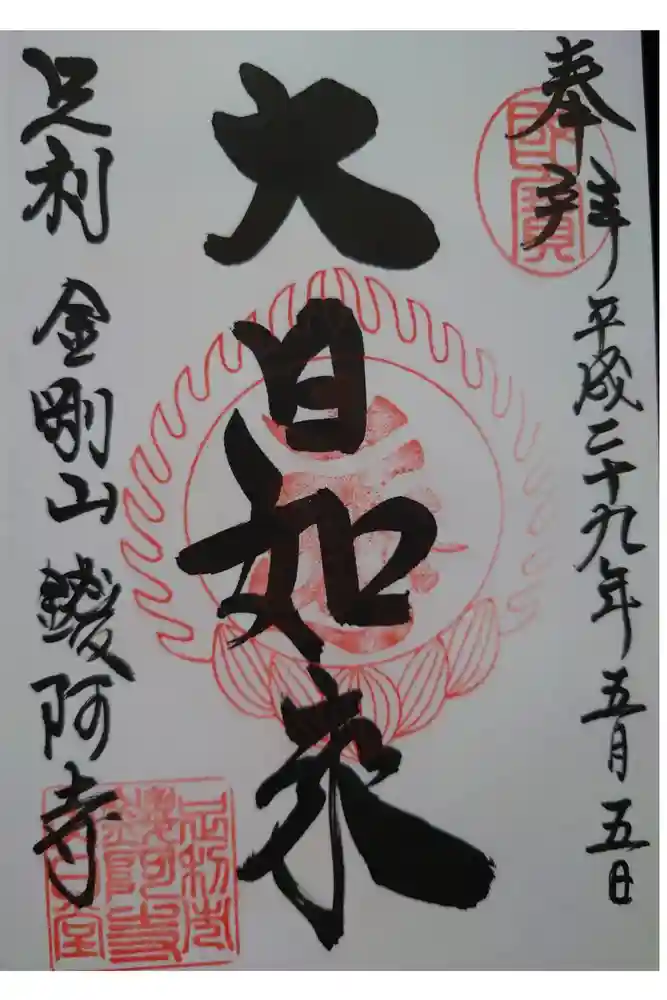 奉拝
国寳
平成二十九年五月五日
大日如来
足利 金剛山 鑁阿寺
足利市
鑁阿寺
大日堂